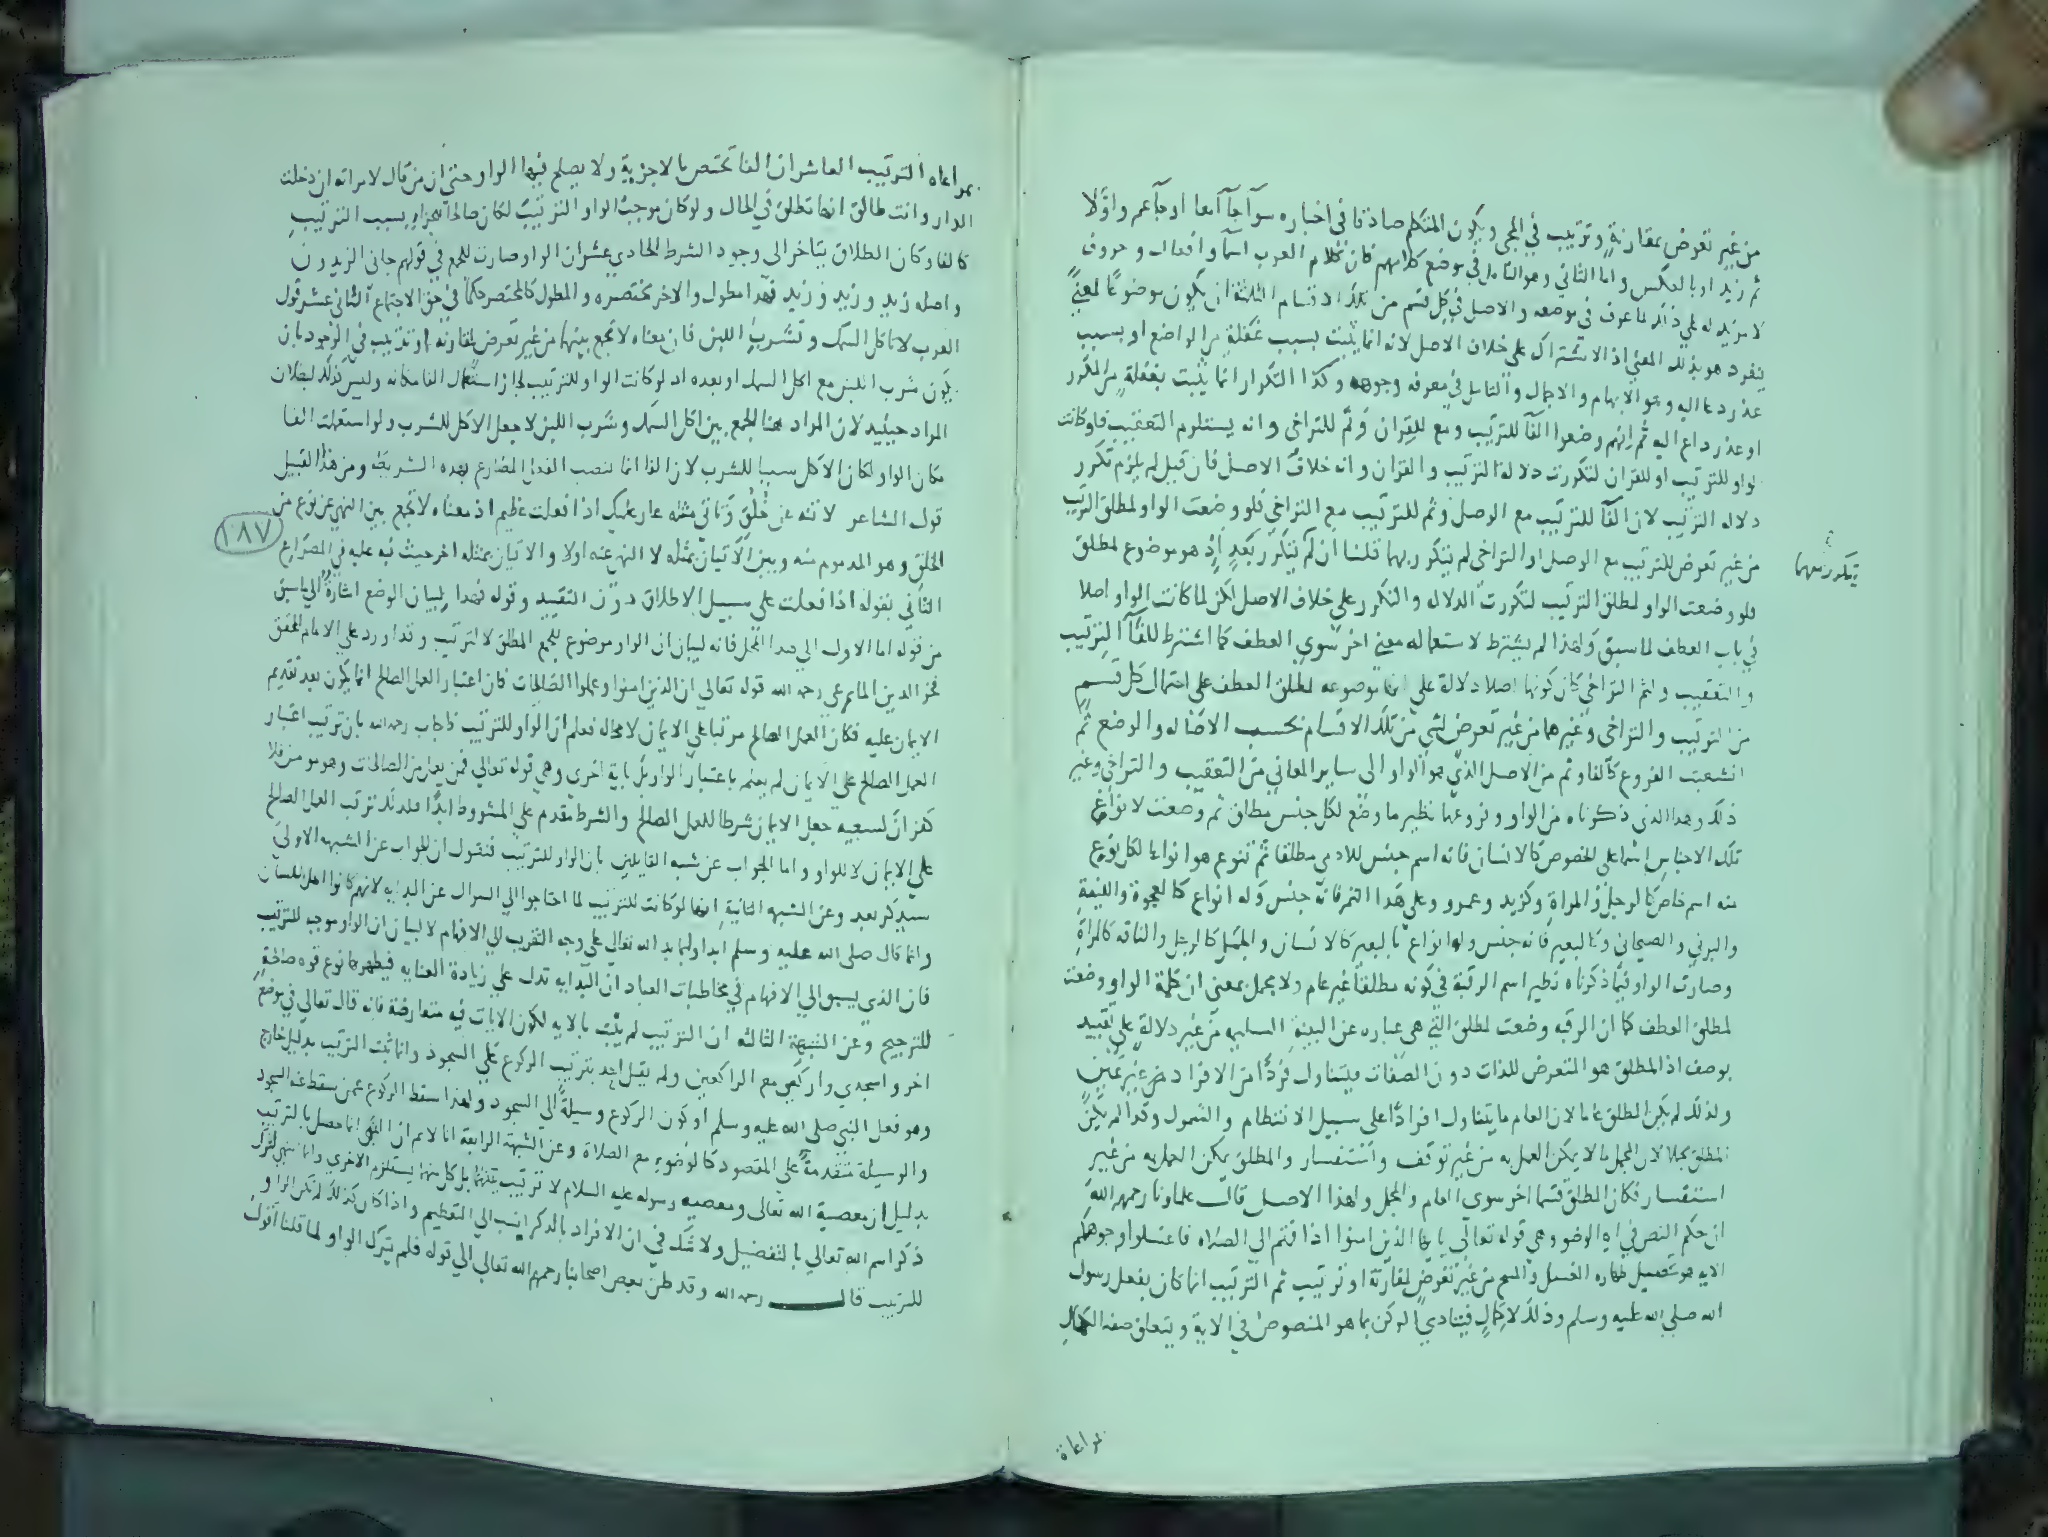 من غير تعرض بمقارنة وترتيب في المجي ويكون المتكلم صادقا في اخباره سوآ جآ آ معا او جآ عمرو اولا
ثم زيد او بالعكس واما الثاني وهو التامل في موضع كلامهم فان كلام العرب اسما وافعال وحروف
لا مزيد له علي ذلك لما عرف في موضعه والاصل في كل قسم من تلك الاقسام الثلثة ان يكون موضوعا لمعني
ينفرد هو بذلك المعني اذ الاشتراك علي خلاف الاصل لانه انما يثبت بسبب غفلة من الواضع او بسبب
عذر دعا اليه وهو الابهام والاجمال والتامل في معرفة وجوهه وكذا التكرار انما يثبت بغفلة من المكرر
او عذر داع اليه ثم انهم وضعوا الفآ للترتيب ومع للقران وثم للتراخي وانه يستلزم التعقيب فلو كانت
الواو للترتيب او للقران لتكررت دلالة الترتيب والقران وانه خلاف الاصل فان قيل لم يلزم تكرر
دلالة الترتيب لان الفآ للترتيب مع الوصل وثم للترتيب مع التراخي فلو وضعت الواو لمطلق الترتيب
من غير تعرض للترتيب مع الوصل او التراخي لم يتكرر بهما قلنا ان لم يتكرر بعد اذ هو موضوع لمطلق
فلو وضعت الواو لمطلق الترتيب لتكررت الدلالة والتكرر علي خلاف الاصل لكن لما كانت الواو اصلا
في باب العطف لما سبق ولهذا لم يشترط لاستعماله معني اخر سوي العطف كما اشترط للفآ الترتيب
والتعقيب ولثم التراخي كان كونها اصلا دلالة علي انها موضوعه لمطلق العطف علي احتمال كل قسم
من الترتيب والتراخي وغيرهما من غير تعرض لشي من تلك الاقسام بحسب الاضاله والوضع ثم
انشعبت الفروع كالفا وثم من الاصل الذي هو الواو الى ساير المعاني من التعقيب والتراخي وغير
ذلك وهذا الذي ذكرناه من الواو وفروعها نظير ما وضع لكل جنس مطلق ثم وضعت لانواع
تلك الاجناس اسما علي الخصوص كالانسان فانه اسم جنس للادمي مطلقا ثم تنوع هو انواعا لكل نوع
منه اسم خاص كالرجل والمراة وكزيد وعمرو وعلي هذا التمر فانه جنس وله انواع كالعجوة واللينة
والبرني والصيحاني وكالبعير فانه جنس وله انواع البعير كالانسان والجمل كالرجل والناقه كالمراة
وصارت الواو فيما ذكرناه نظير اسم الرقبة في كونه مطلقا غير عام ولا مجمل بمعني ان كلمة الواو وضعت
لمطلق العطف كما ان الرقبه وضعت لمطلق التي هي عباره عن البنية السليمه من غير دلالة علي تقييد
بوصف اذ المطلق هو المتعرض للذات دون الصفات فيتناول فردا من الافراد من غير تعين
ولذلك لم يكن المطلق عاما لان العام ما يتناول افرادا علي سبيل الانتظام والشمول وكذا لم يكن
المطلق مجملا لان المجمل ما لا يمكن العمل به من غير توقف واستفسار والمطلق يمكن العمل به من غير
استفسار فكان المطلق قسما اخر سوى العام والمجمل ولهذا الاصل قال علماونا رحمهم الله
ان حكم النص في اية الوضو وهي قوله تعالي يايها الذين امنوا اذا قمتم الي الصلاه فاغسلوا وجوهكم
الايه هو تحصيل طهاره الغسل والمسح من غير تعرض لمقارنة او ترتيب ثم الترتيب انما كان بفعل رسول
الله صلي الله عليه وسلم وذلك لاكمال فيتادي الركن بما هو المنصوص في الاية ويتعلق صفة الكمال
يتكرر بهما
مراعاة
بمراعاه الترتيب العاشر ان الفا تختص بالاجزية ولا يصلح فيها الواو حتي ان من قال لامراته ان دخلت
الدار وانت طالق انها تطلق في الحال ولو كان موجب الواو الترتيب لكان صالحا للجزا بسبب الترتيب
كالفا وكان الطلاق يتاخر الى وجود الشرط الحادي عشر ان الواو صارت للجمع في قولهم جاني الزيدون
واصله زيد وزيد وزيد فهذا مطول والاخر مختصره والمطول كالمختصر حكما في حق الاجتماع الثاني عشر قول
العرب لا تاكل السمك وتشرب اللبن فان معناه لا تجمع بينهما من غير تعرض لمقارنة او ترتيب في الوجود بان
يكون شرب اللبن مع اكل السمك او بعده اذ لو كانت الواو للترتيب لجاز استعمال الفا مكانه وليس كذلك لبطلان
المراد حينئذ لان المراد هنا الجمع بين اكل السمك وشرب اللبن لا جعل الاكل للشرب ولو استعملت الفا
مكان الواو لكان الاكل سببا للشرب لان الفا انما تنصب الفعل المضارع بهذه الشريطة ومن هذا القبيل
قول الشاعر لا تنه عن خلق وتاتي مثله عار عليك اذا فعلت عظيم اذ معناه لا تجمع بين النهي عن نوع من
الخلق وهو المذموم منه وبين الاتيان بمثله لا النهي عنه اولا والاتيان بمثله اخر حيث نبه عليه في المصراع
الثاني بقوله اذا فعلت علي سبيل الاطلاق دون التقييد وقوله فهذا لبيان الوضع اشارة الي ما سبق
من قوله اما الاول الي هذا المحل فانه لبيان ان الواو موضوع للجمع المطلق لا لترتيب وقد اورد علي الامام المحقق
فخر الدين المايمرغي رحمه الله قوله تعالي ان الذين امنوا وعملوا الصالحات فان اعتبار العمل الصالح انما يكون بعد تقديم
الايمان عليه فكان العمل الصالح مرتبا علي الايمان لا محاله فعلم ان الواو للترتيب فاجاب رحمه الله بان ترتيب اعتبار
العمل الصالح علي الايمان لم يعلم باعتبار الواو بل باية اخري وهي قوله تعالي فمن يعمل من الصالحات وهو مومن فلا
كفران لسعيه جعل الايمان شرطا للعمل الصالح والشرط مقدم علي المشروط ابدا فلذلك ترتب العمل الصالح
علي الايمان لا للواو واما الجواب عن شبه القايلين بان الواو للترتيب فنقول ان الجواب عن الشبهه الاولي
سيذكر بعد وعن الشبهه الثانية انها لو كانت للترتيب لما احتاجوا الي السوال عن البدايه لانهم كانوا اهل اللسان
وانما قال صلى الله عليه وسلم ابداوا بما بدا الله تعالي علي وجه التقريب الي الافهام لا لبيان ان الواو موجبه للترتيب
فان الذي يسبق الي الافهام في مخاطبات العباد ان البدايه تدل علي زيادة العنايه فيظهر بها نوع قوه صالحة
للترجيح وعن الشبهة الثالثه ان الترتيب لم يثبت بالايه لكون الايات فيه متعارضة فانه قال تعالي في موضع
اخر واسجدي واركعي مع الراكعين ولم يقل احد بترتيب الركوع علي السجود وانما ثبت الترتيب بدليل خارج
وهو فعل النبي صلى الله عليه وسلم او كون الركوع وسيلة الي السجود ولهذا سقط الركوع عمن سقط عنه السجود
والوسيلة متقدمة علي المقصود كالوضوء مع الصلاة وعن الشبهة الرابعة انا لا نم ان النهي انما حصل بالترتيب
بدليل ان معصية الله تعالي ومعصية رسوله عليه السلام لا ترتيب بينهما بل كل منهما يستلزم الاخري وانما نهي لترك
ذكر اسم الله تعالي بالتفضيل ولا شك في ان الافراد بالذكر انسب الي التعظيم واذا كان كذلك لم تكن الواو
للترتيب قال رحمه الله وقد ظن بعض اصحابنا رحمهم الله تعالي الي قوله فلم يترك الواو لما قلنا اقول
١٨٧